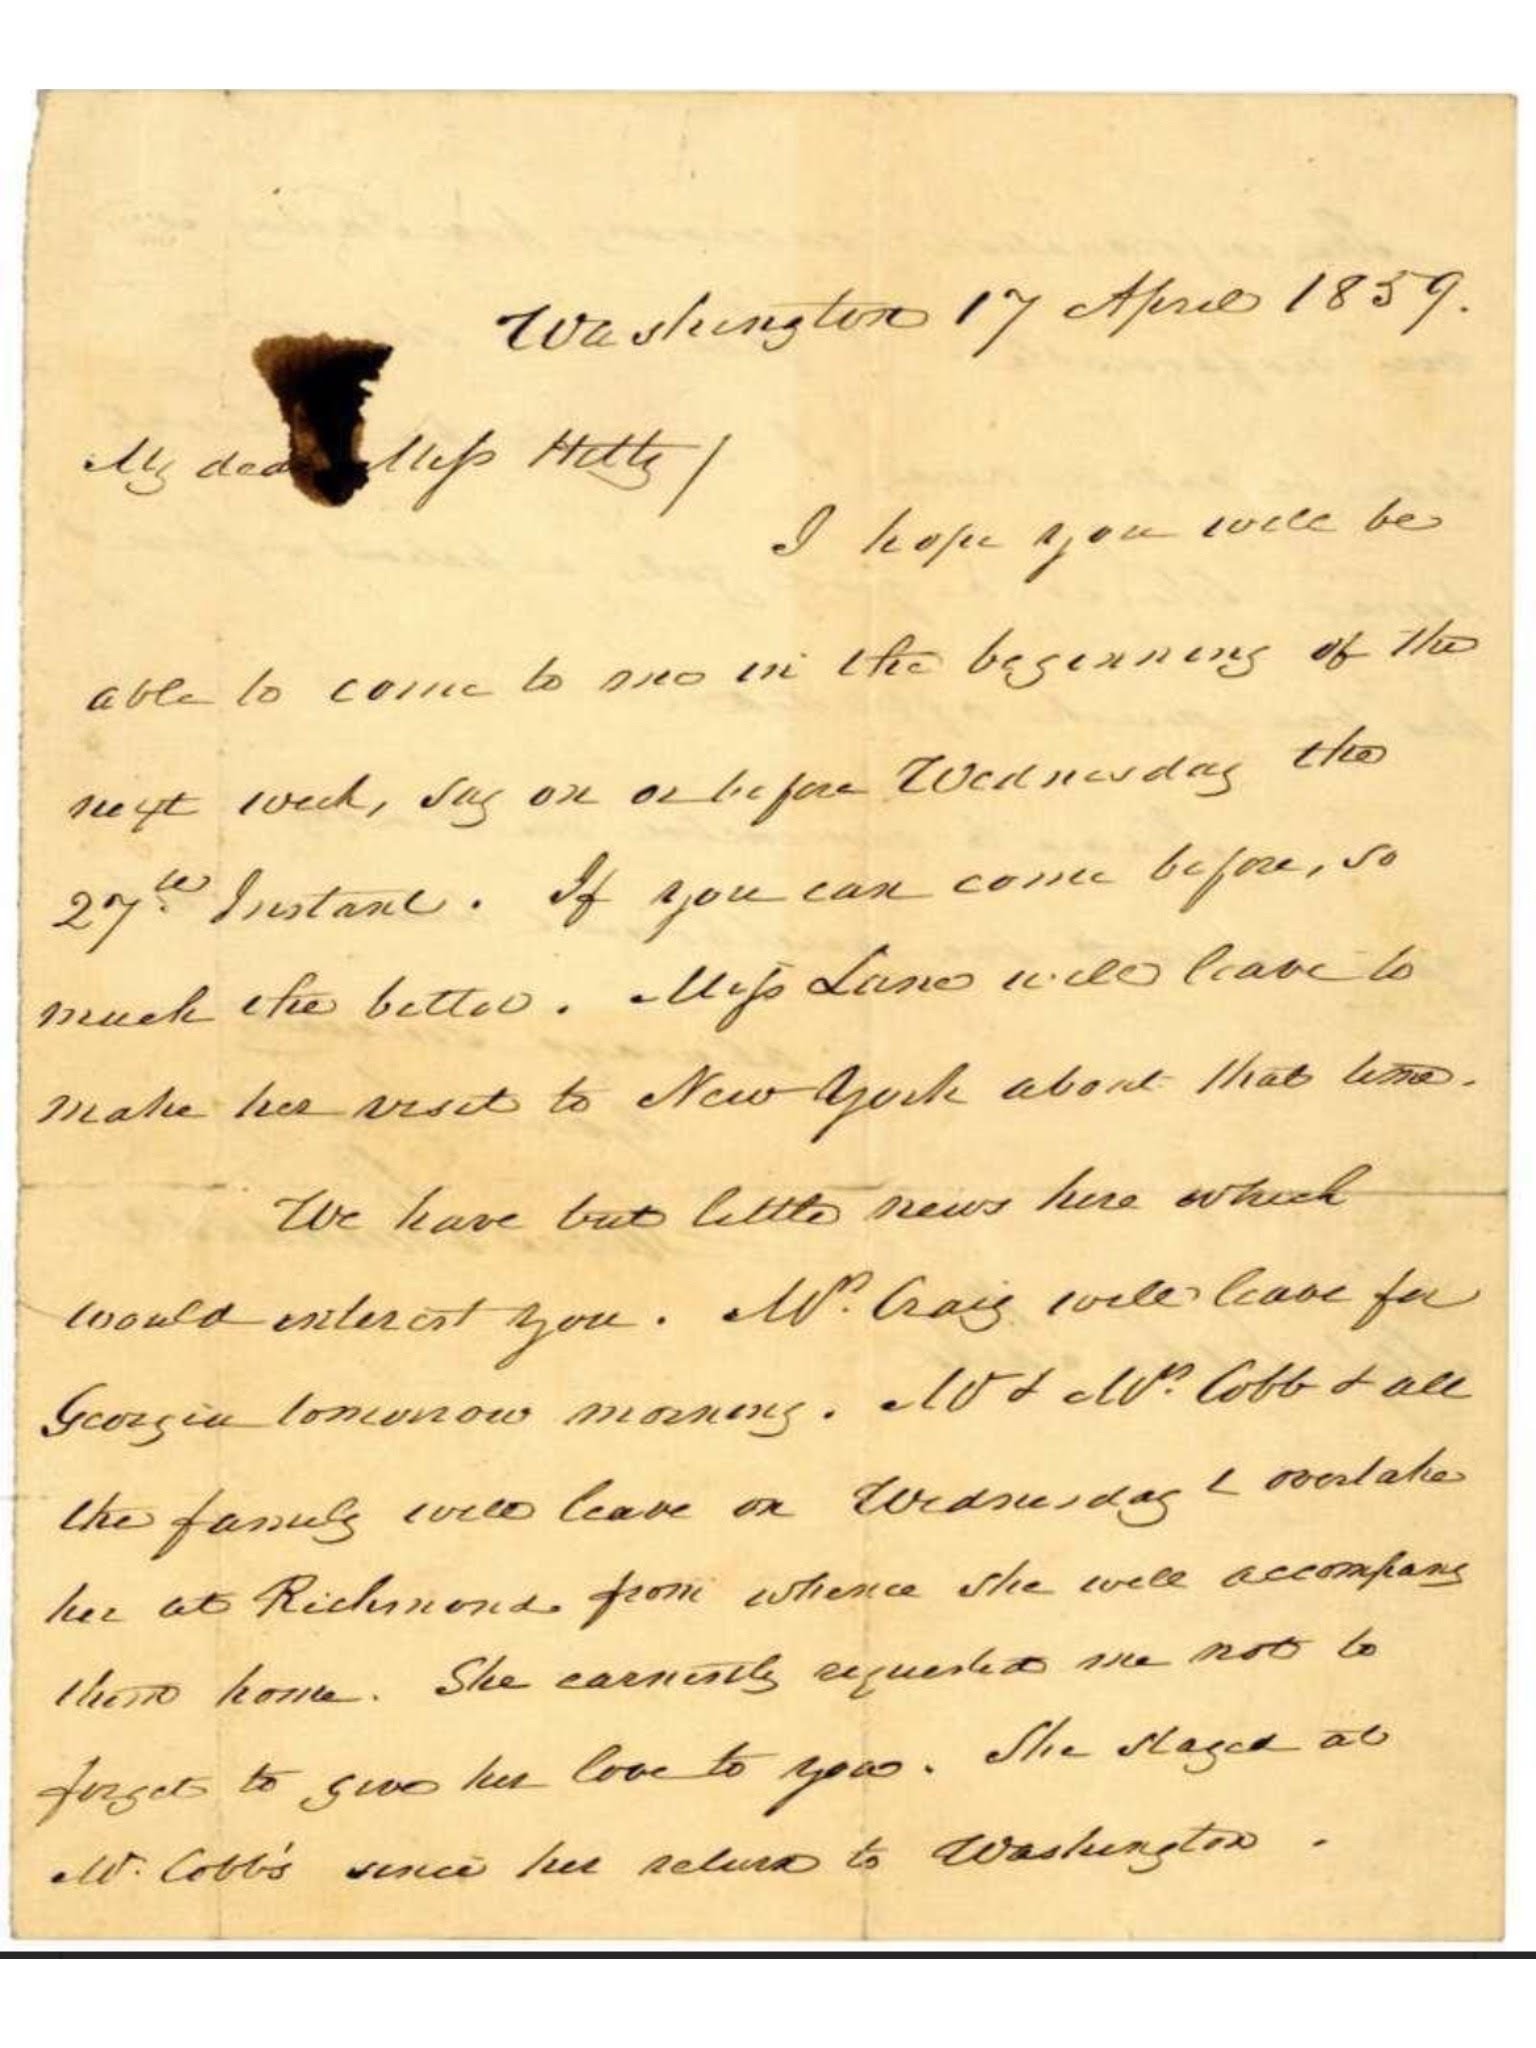 Washington 17 April 1859.
My dear Miss Hetty/
I hope you will be
able to come to me in the beginning of the
next week, say on or before Wednesday the
27th. Instant. If you can come before, so
much the better. Miss Lane will leave to
make her visit to New York about that time.
We have but little news here which
would interest you. Mrs. Craig will leave for
Georgia tomorrow morning. Mr & Mrs. Cobb & all
the family will leave on Wednesday & overtake
her at Richmond from whence she will accompany
them home. She earnestly requested me not to
forget to give her love to you. She staged at
Mr. Cobb's since her return to Washington.